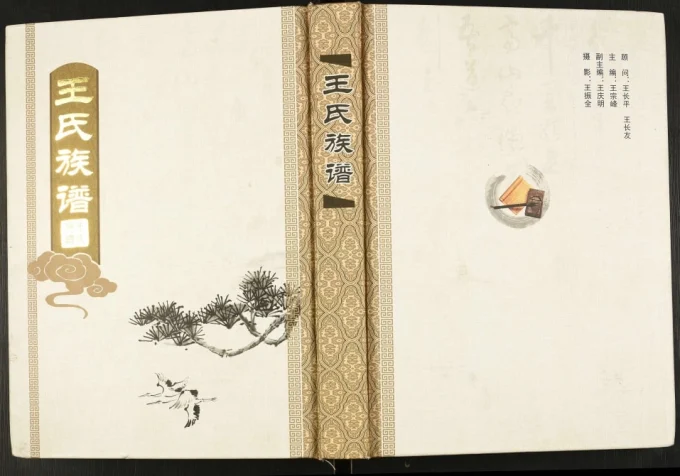 王氏族谱
王氏族谱
顾 问：王长平 王长友
主 编：王宗峰
副主编：王庆明
摄 影：王振金